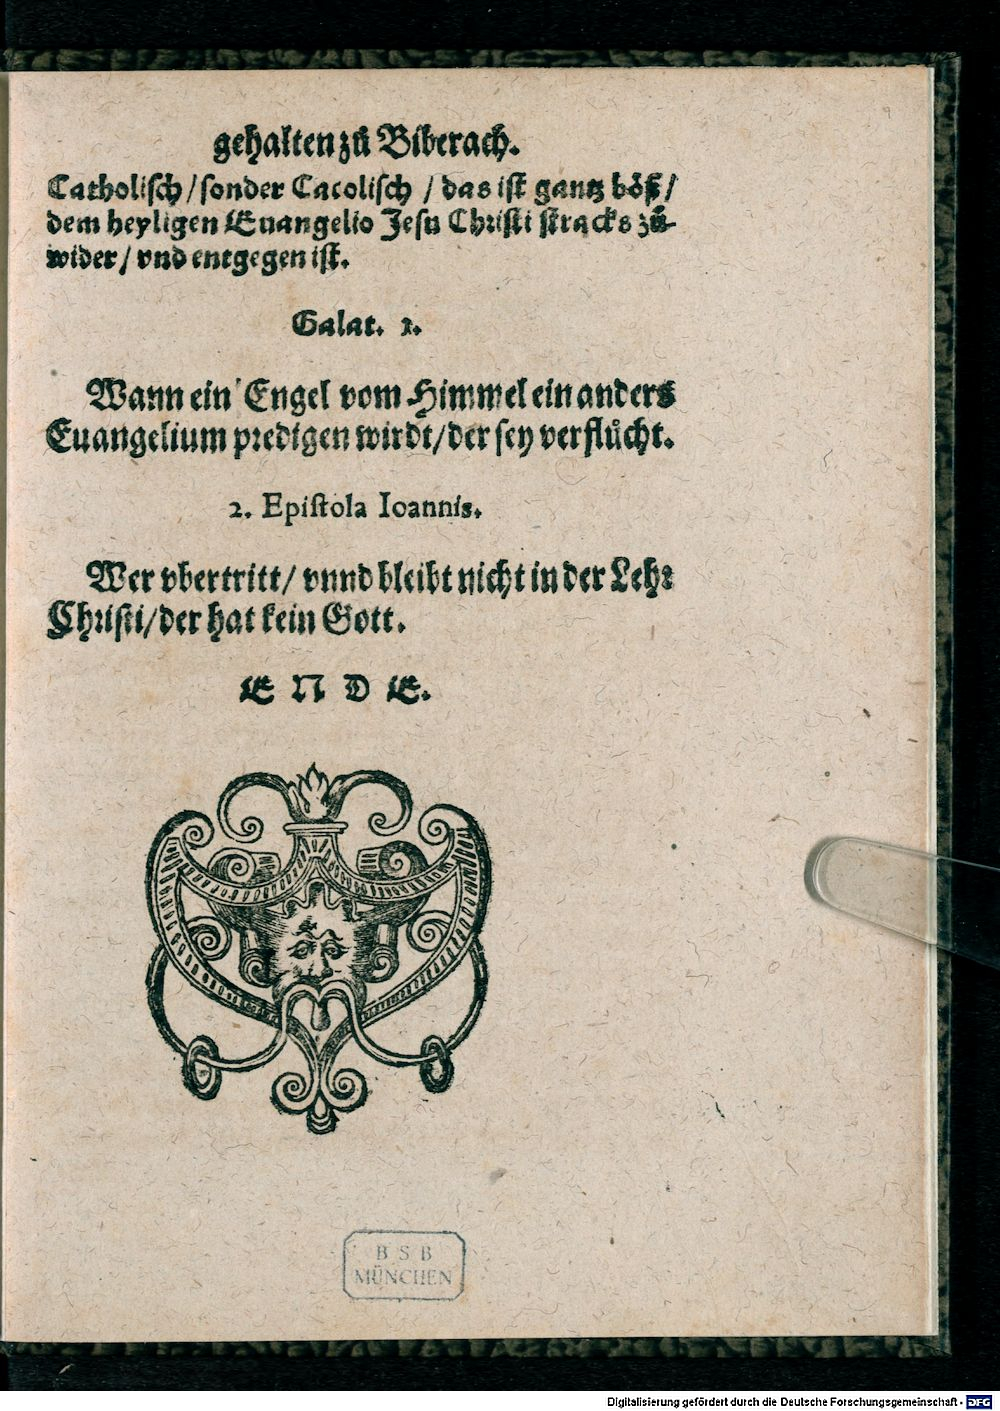 gehalten zů Biberach.
Catholisch / sonder Cacolisch / das ist gantz bo̊ß /
dem heyligen Euangelio Jesu Christi stracks zů-
wider / vnd entgegen ist.
Galat. 1.
Wann ein Engel vom Himmel ein anders
Euangelium predigen wirdt / der sey verflůcht.
2. Epistola Ioannis.
Wer vbertritt / vnnd bleibt nicht in der Lehr
Christi / der hat kein Gott.
E N D E.
B S B
MÜNCHEN
Digitalisierung gefördert durch die Deutsche Forschungsgemeinschaft - DFG